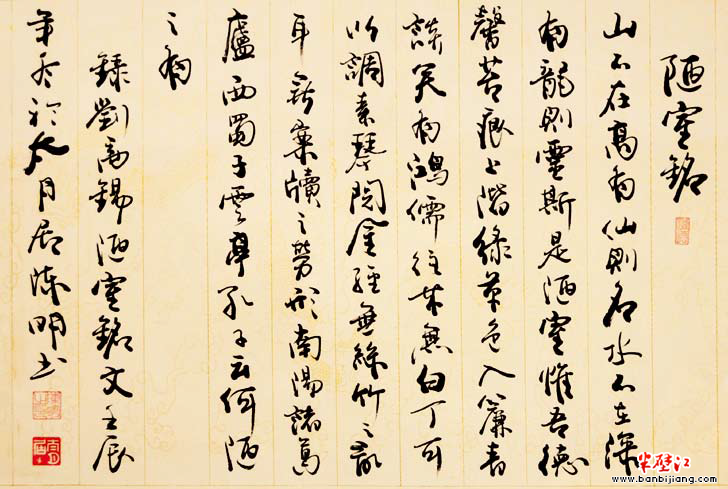 陋室銘
山不在高有仙則名水不在深
有龍則靈斯是陋室惟吾德
馨苔痕上階綠草色入簾青
談笑有鴻儒往來無白丁可
以調素琴閱金經無絲竹之亂
耳無案牘之勞形南陽諸葛
廬西蜀子雲亭孔子云何陋
之有
錄劉禹錫陋室銘文壬辰
年冬於太月居陳明書
半壁江
www.banbijiang.com